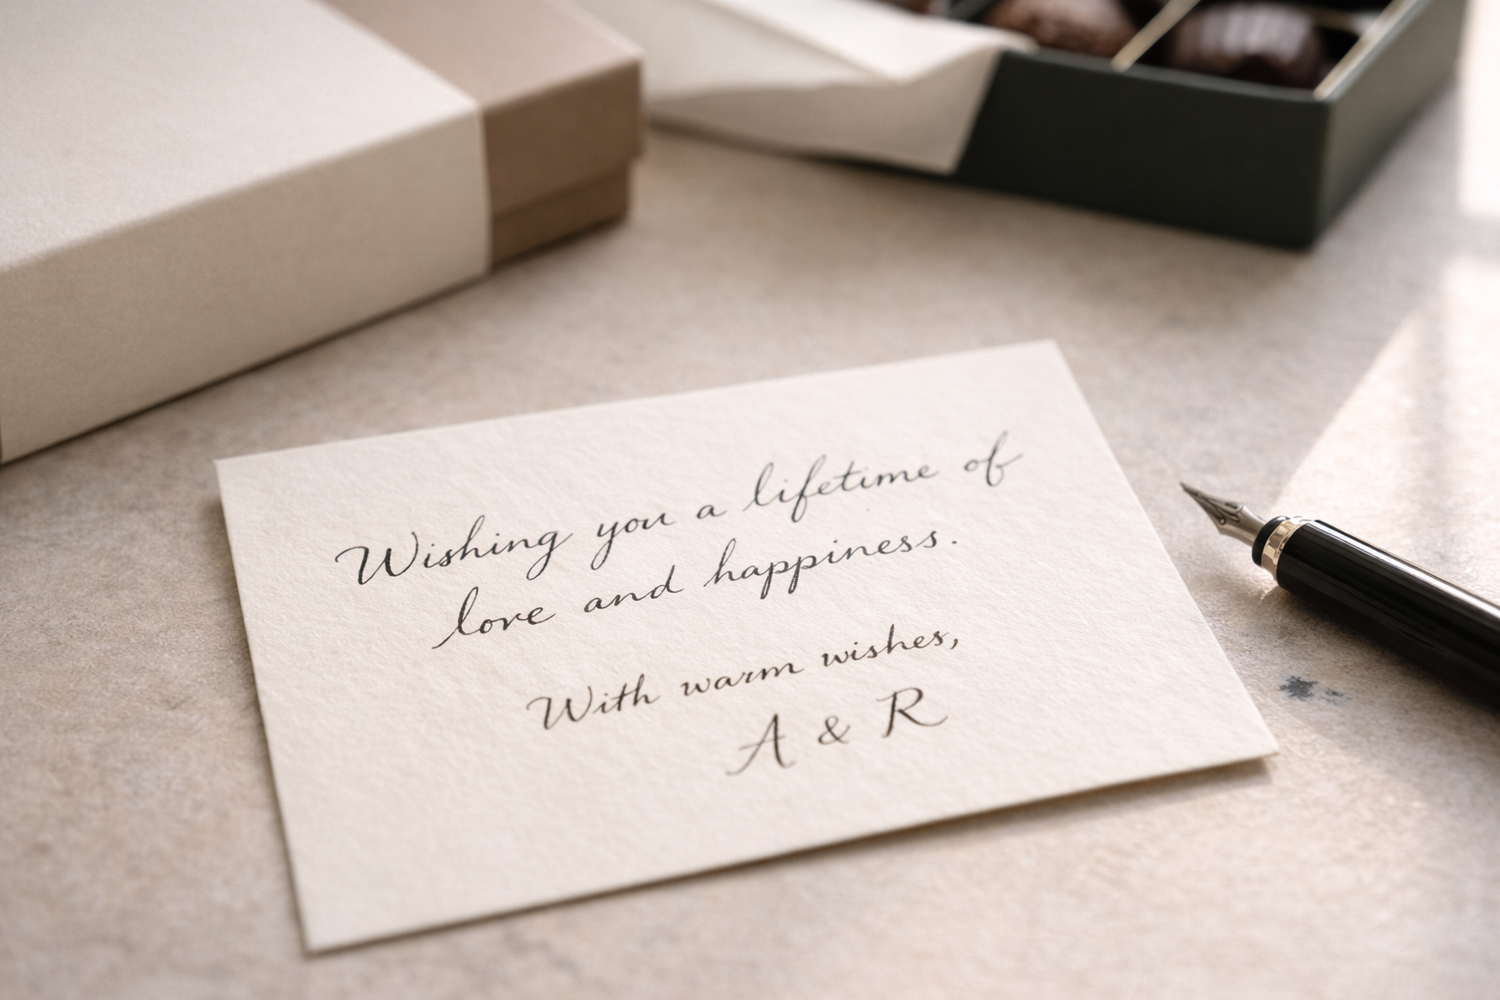 Wishing you a lifetime of
love and happiness.
With warm wishes,
A & R